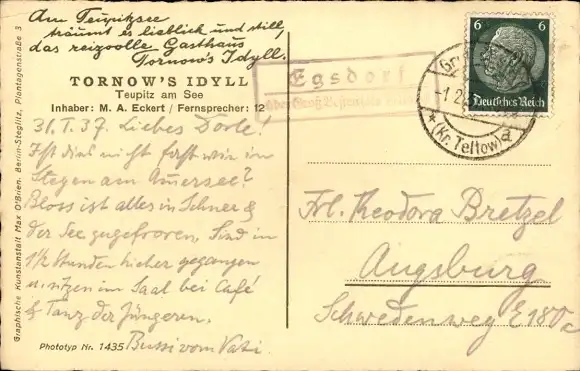 Am Teupitzsee
träumt es lieblich und still,
das reizvolle Gasthaus
Tornow's Idyll.
TORNOW'S IDYLL
Teupitz am See
Inhaber: M. A. Eckert / Fernsprecher: 12
31.I.37. Liebes Dorle!
Ist dies nicht fast wie in
Stegen am Ammersee?
Bloss ist alles in Schnee &
der See zugefroren. Sind in
1 1/2 Stunden hieher gegangen
u. sitzen im Saal bei Café
& Tanz der Jüngeren.
Bussi vom Vati.
Phototyp Nr. 1435
Graphische Kunstanstalt Max O'Brien, Berlin-Steglitz, Plantagenstraße 3
Egsdorf
über Groß
6 6
Deutsches Reich
(Kr. Teltow)
Frl. Theodora Bretzel
Augsburg
Schwedenweg E180